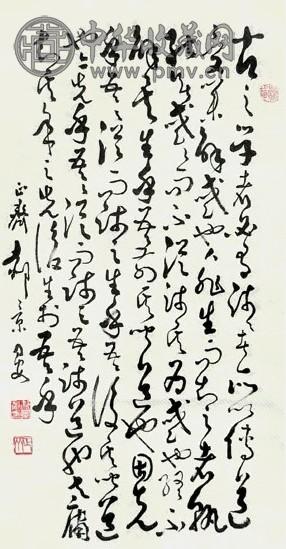 中华收藏网
www.pmv.cn
古之学者必有师々者所以传道
受业解惑也人非生而知之者孰
能无惑々而不从师其为惑也终不
解矣生乎吾前其闻道也固先
乎吾吾从而师之生乎吾後其闻道
也亦先乎吾吾从而师之吾师道也夫庸
知其年之先後生於吾乎